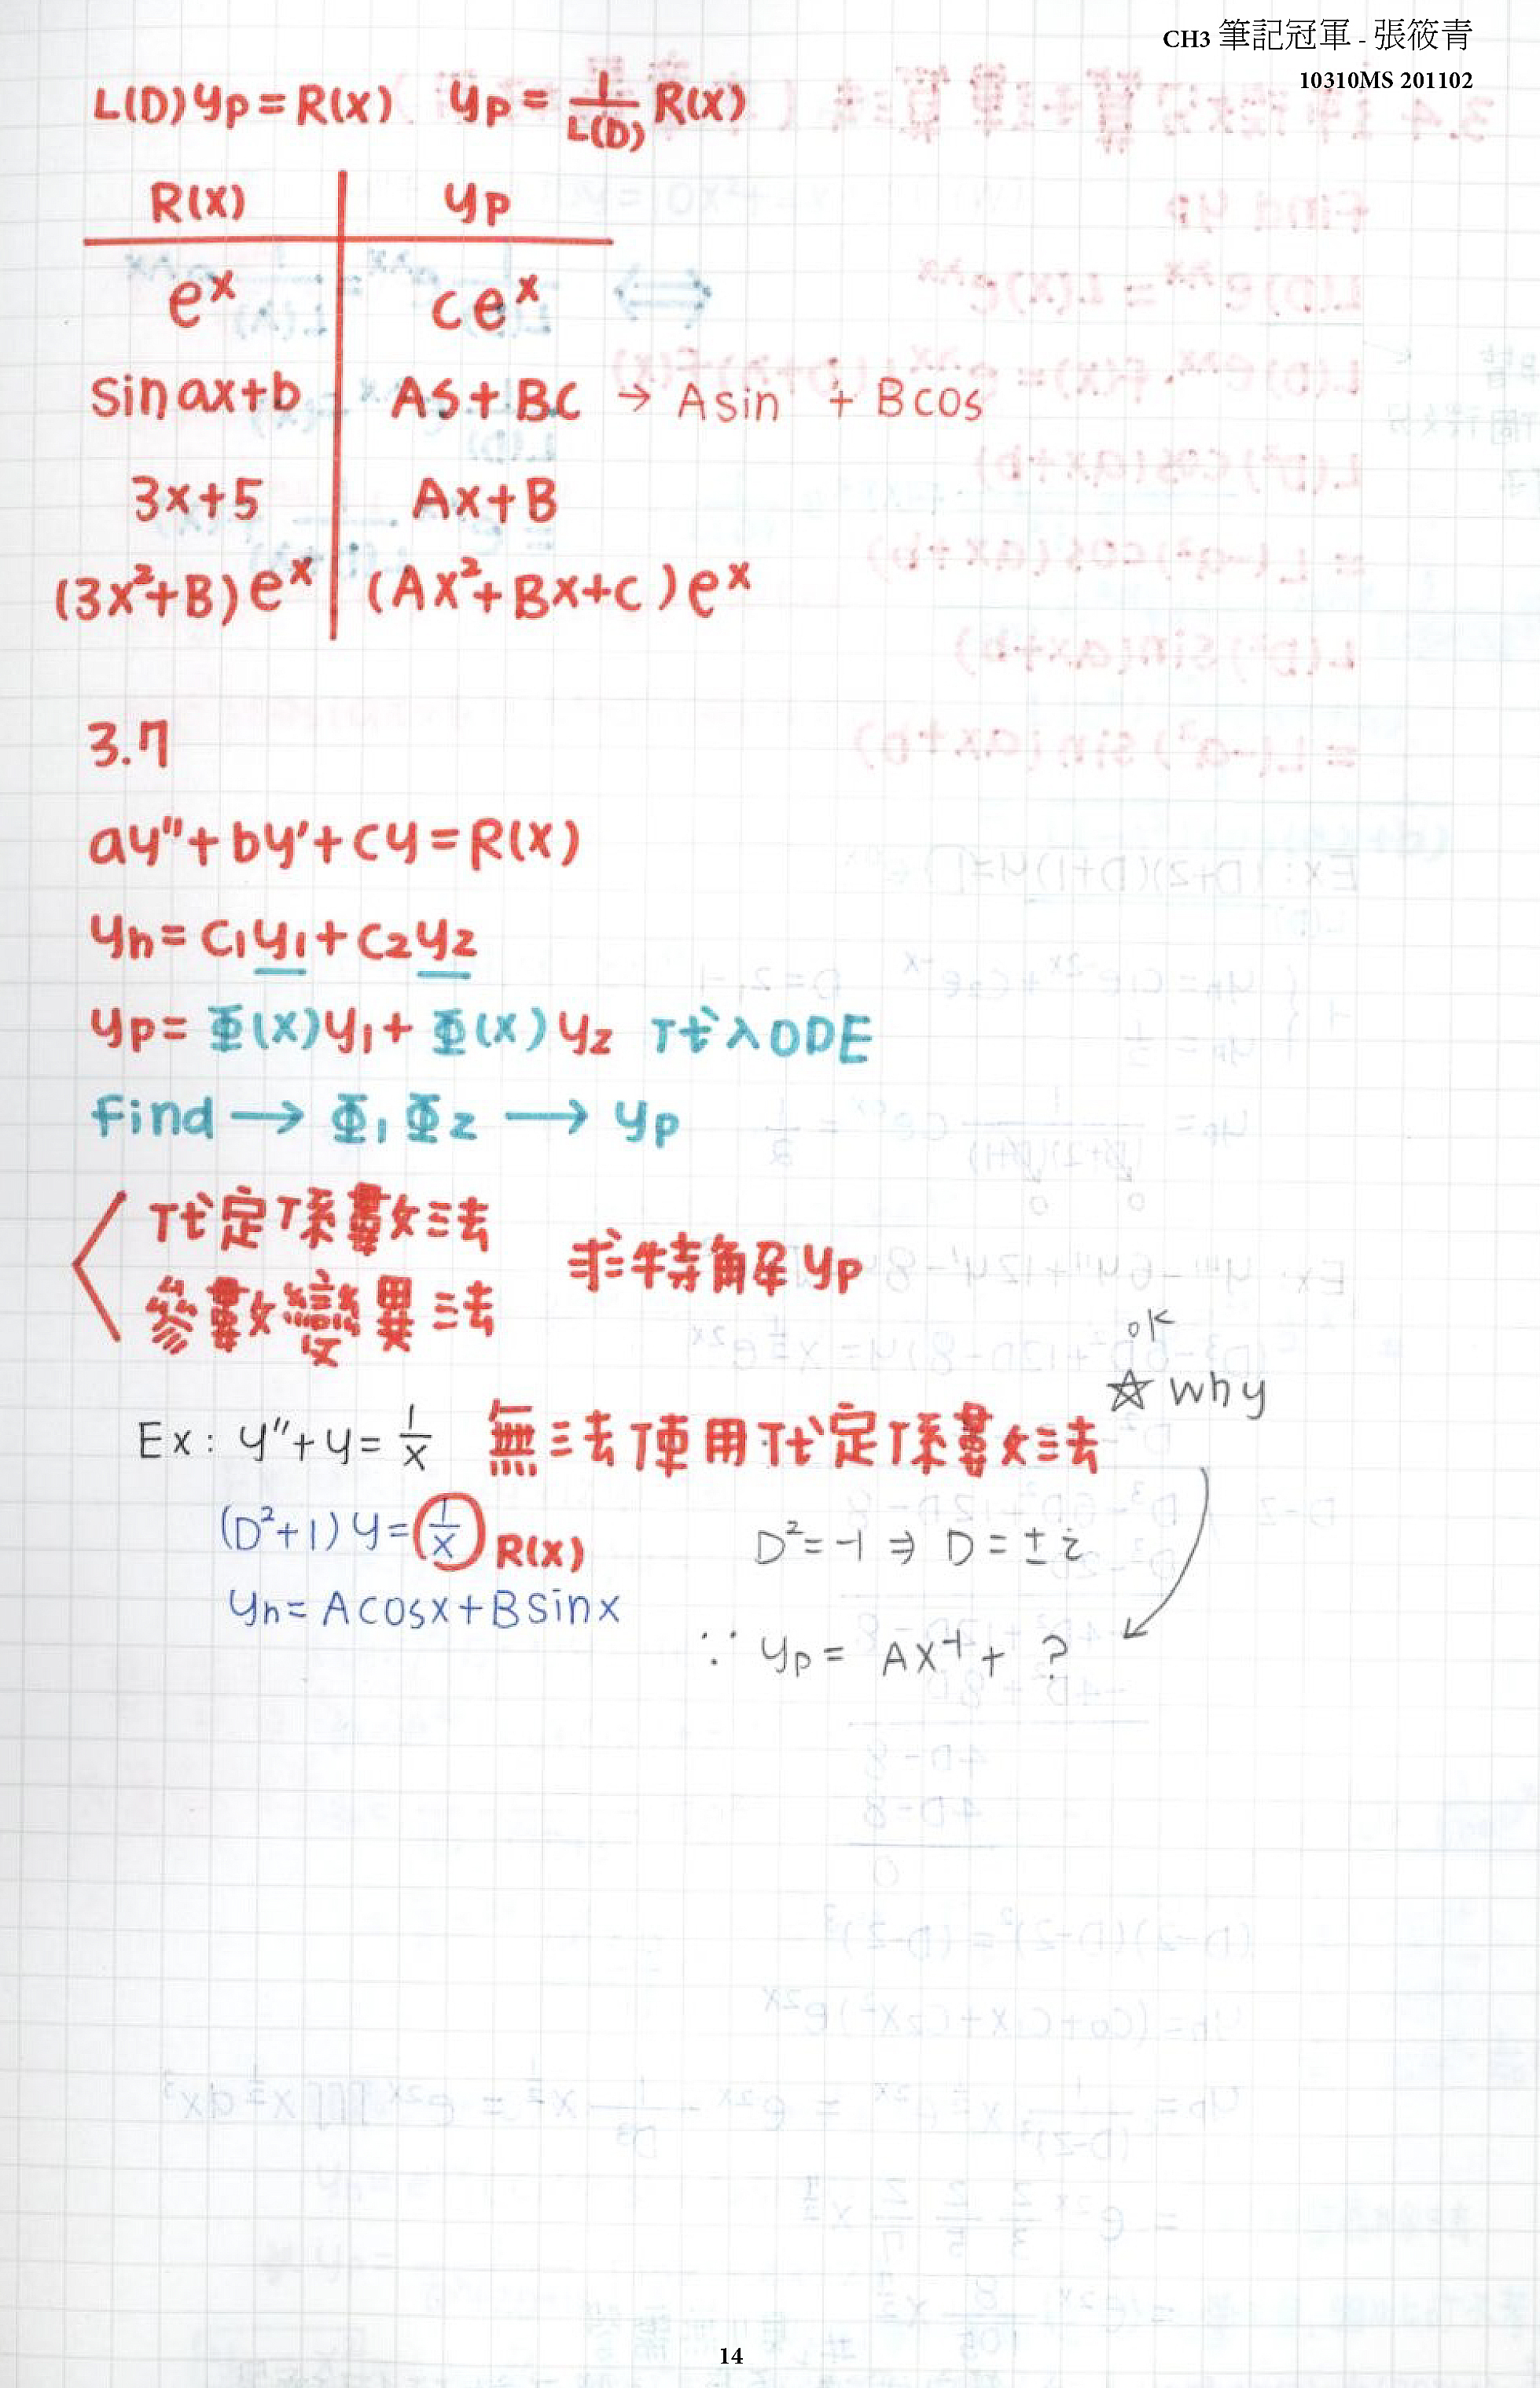 CH3 筆記冠軍 - 張筱青
10310MS 201102
L(D)yp=R(x) yp=1/L(D) R(x)
R(x) yp
e^x ce^x
sinax+b AS+BC → Asin + Bcos
3x+5 Ax+B
(3x²+B)e^x (Ax²+Bx+c)e^x
3.7
ay"+by'+cy=R(x)
yh=c₁y₁+c₂y₂
yp=Φ(x)y₁+Φ(x)y₂ 代入ODE
Find → Φ₁Φ₂ → yp
代定係數法
參數變異法
求特解yp
ok
☆ why
Ex: y"+y=1/x 無法使用代定係數法
(D²+1)y=1/x R(x)
D²=-1 ⇒ D=±i
yh=Acosx+Bsinx
∵ yp= Ax⁻¹+ ?
14